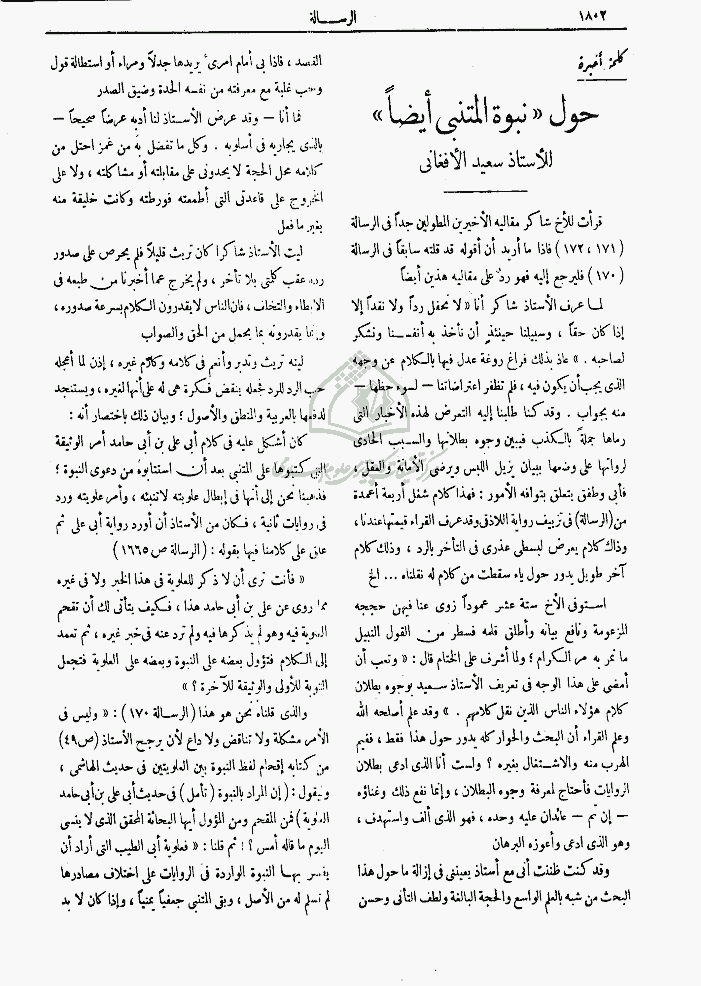 ١٨٠٢
الرسالة
كلمة أخيرة
حول « نبوة المتنبي أيضاً »
للأستاذ سعيد الأفغاني
قرأت للأخ شاكر مقاليه الأخيرين المطولين جداً في الرسالة
( ١٧١ ، ١٧٢ ) فاذا ما أريد أن أقوله قد قلته سابقاً في الرسالة
( ١٧٠ ) فليرجع إليه فهو ردٌ على مقاليه هذين أيضاً
لما عرف الأستاذ شاكر أنا « لا نحفل رداً ولا نقداً إلا
إذا كان حقاً ، وسبيلنا حينئذٍ أن نأخذ به أنفسنا ونشكر
لصاحبه . » عاذ بذلك فراغ روغة عدل فيها بالكلام عن وجهه
الذي يجب أن يكون فيه ، فلم تظفر اعتراضاتنا — لسوء حظها —
منه بجواب . وقد كنا طلبنا إليه التعرض لهذه الأخبار التي
رماها جملةً بالكذب فيبين وجوه بطلانها والسبب الحادي
لرواتها على وضعها ببيان يزيل اللبس ويرضي الأمانة والعقل ،
فأبى وطفق يتعلق بتوافه الأمور : فهذا كلام شغل أربعة أعمدة
من (الرسالة) في تزييف رواية اللاذقي وقد عرف القراء قيمتها عندنا ،
وذاك كلام يعرض لبسطي عذري في التأخر بالرد ، وذلك كلام
آخر طويل يدور حول ياء سقطت من كلام له نقلناه ... الخ
استوفى الأخ ستة عشر عموداً زوى عنا فيهن حججه
المزعومة ونافع بيانه وأطلق قلمه فسطر من القول النبيل
ما تمر به مر الكرام ؛ ولما أشرف على الختام قال : « ونحب أن
أمضي على هذا الوجه في تعريف الأستاذ سعيد بوجوه بطلان
كلام هؤلاء الناس الذين نقل كلامهم . » وقد علم أصلحه الله
وعلم القراء أن البحث والحوار كله يدور حول هذا فقط ، ففيم
الهرب منه والاشتغال بغيره ؟ ولست أنا الذي ادعى بطلان
الروايات فأحتاج لمعرفة وجوه البطلان ، وإنما نفع ذلك وغناؤه
— إن تم — عائدان عليه وحده ، فهو الذي ألف واستهدف ،
وهو الذي ادعى وأعوزه البرهان
وقد كنت ظننت أني مع أستاذ يعينني في إزالة ما حول هذا
البحث من شبه بالعلم الواسع والحجة البالغة ولطف التأتي وحسن
القصد ، فاذا بي أمام امرئ يريدها جدلاً ومراء أو استطالة قول
وحب غلبة مع معرفته من نفسه الحدة وضيق الصدر
فما أنا — وقد عرض الأستاذ لنا أدبه عرضاً صحيحاً —
بالذي يجاريه في أسلوبه . وكل ما تفضل به من غمز احتل من
كلامه محل الحجة لا يحدوني على مقابلته أو مشاكلته ، ولا على
الخروج على قاعدتي التي أطمعته فورطته وكانت خليقة منه
بغير ما فعل
ليت الأستاذ شاكرا كان تريث قليلاً فلم يحرص على صدور
رده عقب كلمتي بلا تأخر ، ولم يخرج عما أخبرنا من طبعه في
الابطاء والتخلف ، فان الناس لا يقدرون الكلام بسرعة صدوره ،
وإنما يقدرونه بما يحمل من الحق والصواب
ليته تريث وتدبر وأنعم في كلامه وكلام غيره ، إذن لما أعجله
حب الرد للرد فجعله ينقض فكرة هي له على أنها لغيره ، ويستنجد
لدفعها بالعربية والمنطق والأصول ؛ وبيان ذلك باختصار أنه :
كان أشكل عليه في كلام أبي علي بن أبي حامد أمر الوثيقة
التي كتبوها على المتنبي بعد أن استتابوه من دعوى النبوة ؛
فذهبنا نحن إلى أنها في إبطال علويته لا تنبئه ، وأمر علويته ورد
في روايات ثانية ، فكان من الأستاذ أن أورد رواية أبي علي ثم
علق على كلامنا فيها بقوله : ( الرسالة ص ١٦٦٥ )
« فأنت ترى أن لا ذكر للعلوية في هذا الخبر ولا في غيره
مما روى عن علي بن أبي حامد هذا ، فكيف يتأتى لك أن تقحم
العلوية فيه وهو لم يذكرها فيه ولم ترد عنه في خبر غيره ، ثم تعمد
إلى الكلام فتؤول بعضه على النبوة وبعضه على العلوية فتجعل
التوبة للأولى والوثيقة للآخرة ؟ »
والذي قلناه نحن هو هذا ( الرسالة ١٧٠ ) : « وليس في
الأمر مشكلة ولا تناقض ولا داع لأن يرجح الأستاذ (ص ٤٩)
من كتابه إقحام لفظ النبوة بين العلويتين في حديث الهاشمي ،
ويقول : ( إن المراد بالنبوة ( تأمل ) في حديث أبي علي بن أبي حامد
العلوية ) فمن المقحم ومن المؤول أيها البحاثة المحقق الذي لا ينسى
اليوم ما قاله أمس ؟ ! ثم قلنا : « فعلوية أبي الطيب التي أراد أن
يفسر بها النبوة الواردة في الروايات على اختلاف مصادرها
لم نسلم له من الأصل ، وبقي المتنبي جعفياً يمنياً ، وإذا كان لا بد